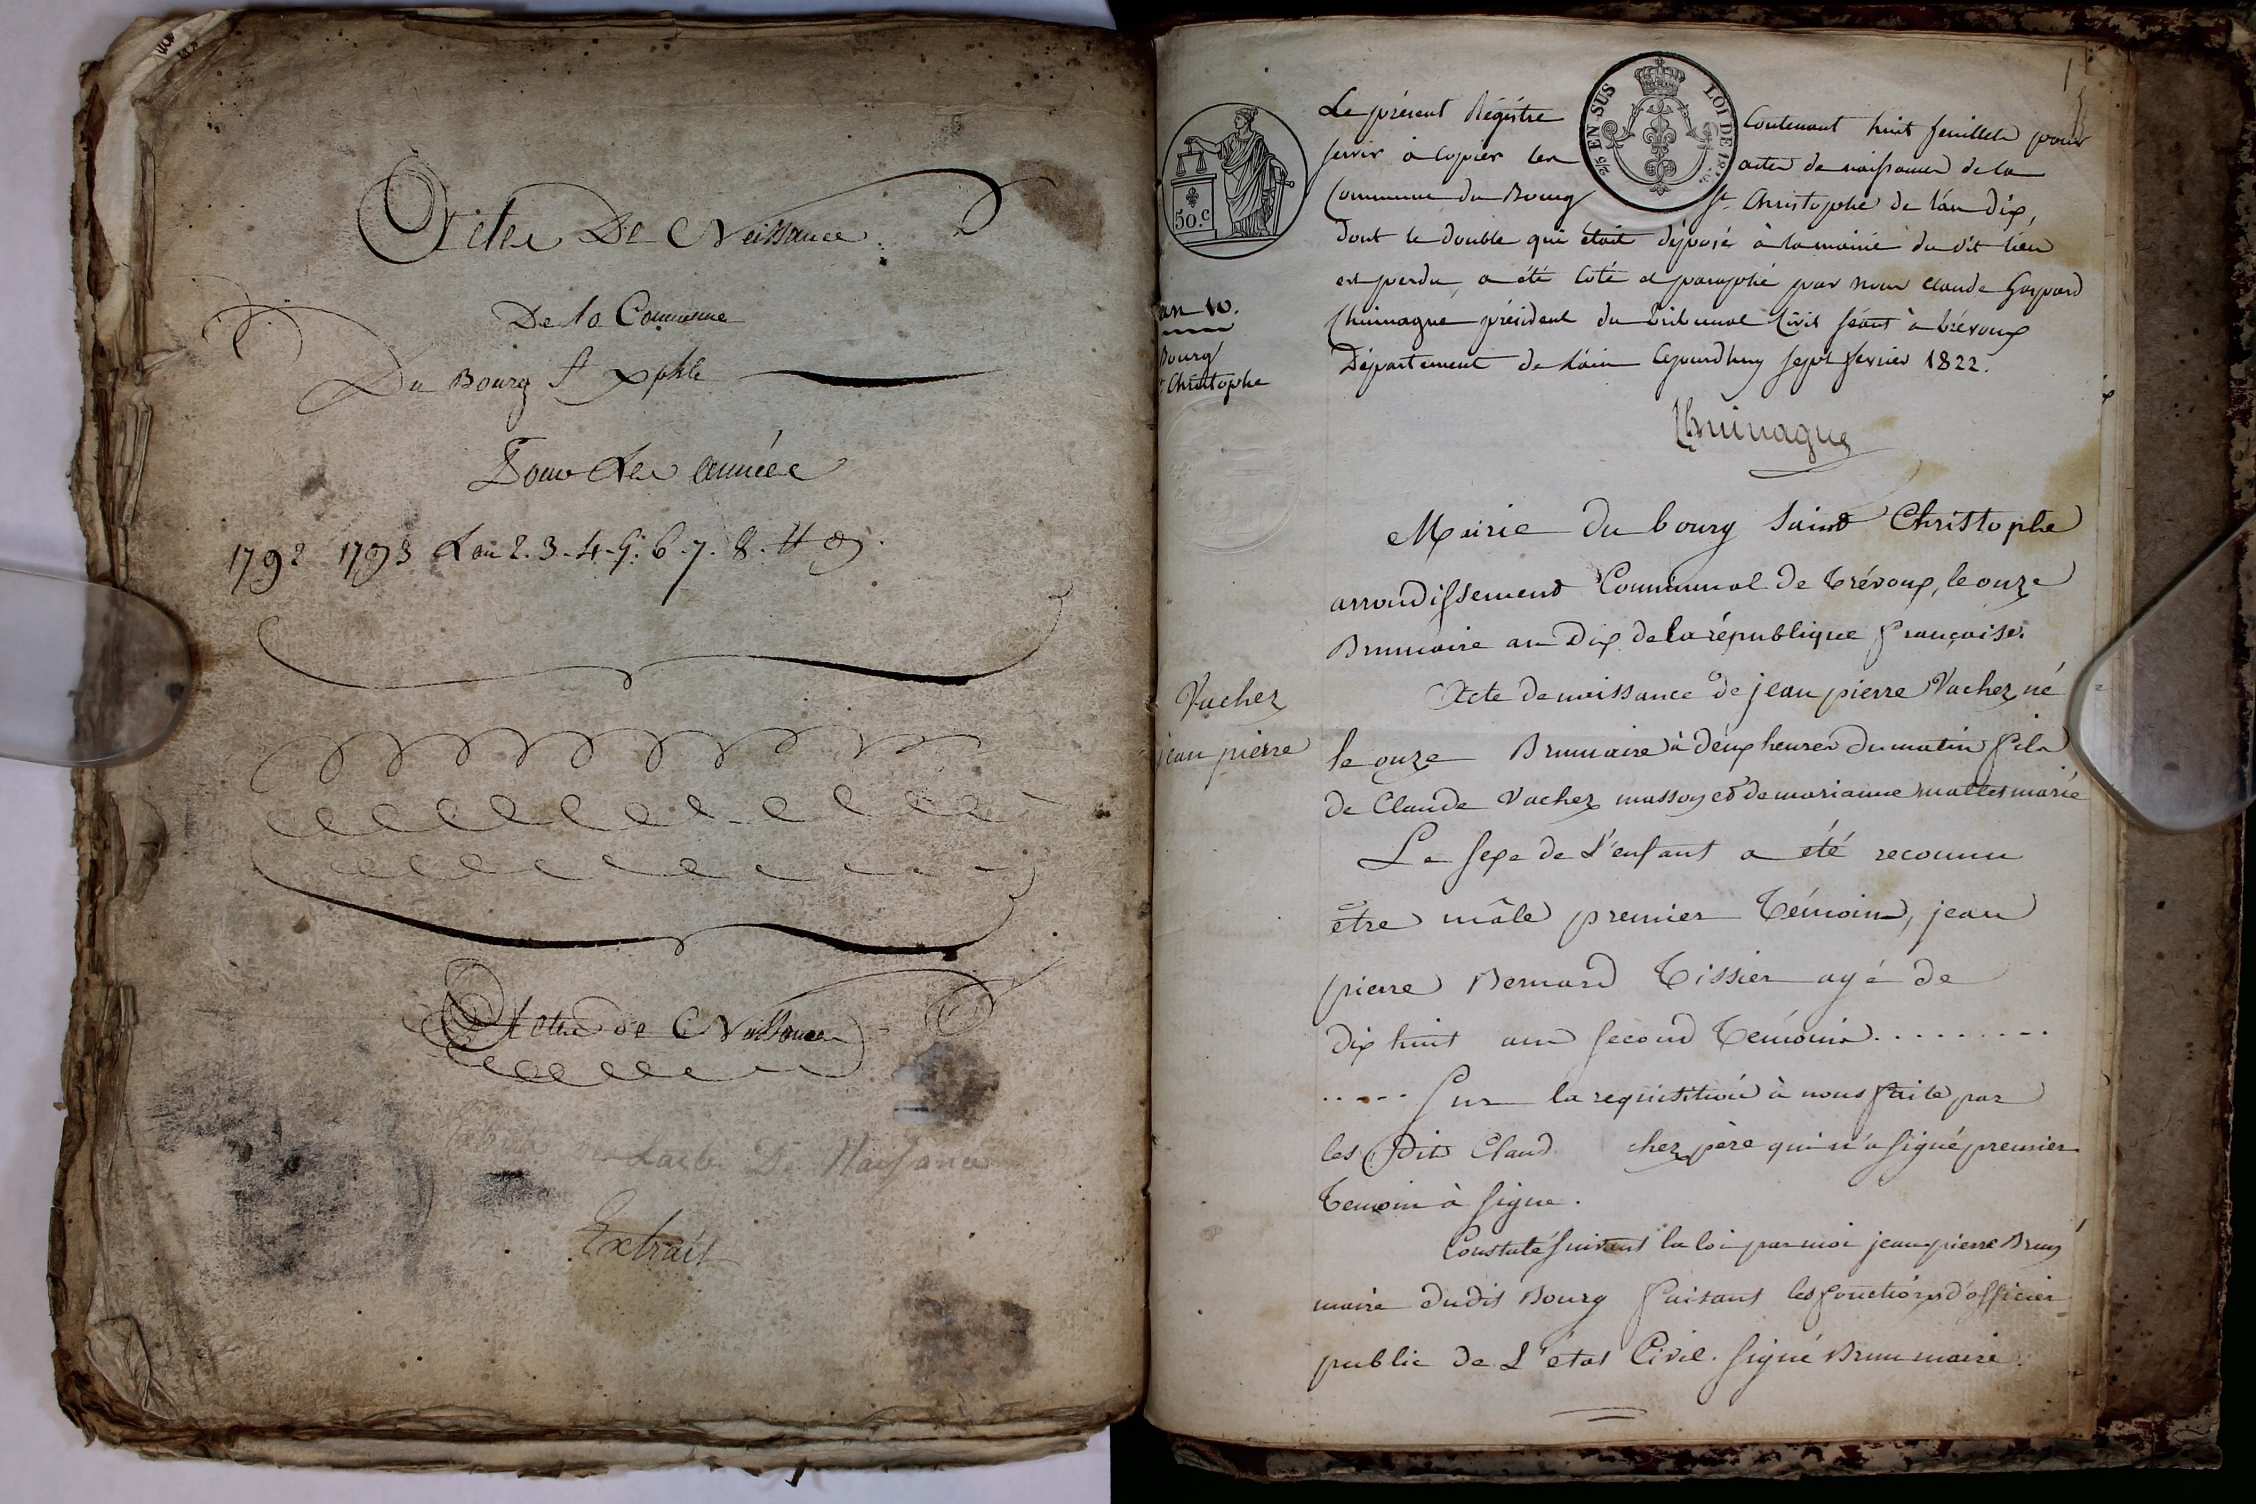 Actes De Naissance
De la Commune
Du Bourg St Xphle
Pour Les années
1792 1793 L'an 2. 3. 4. 5. 6. 7. 8. et 9.
Actes de Naissance
De Naissance
Extrait
1
Le présent Régistre Contenant huit feuillets pour
servir à copier les actes de naissances de la
Commune du Bourg St. Christophe de l'an dix,
dont le double qui était déposé à la mairie du dit lieu
est perdu, a été coté et paraphé par nous Claude Gaspard
Chuinague président du tribunal Civil séant à trévoux
Département de l'ain aujourdhuy sept fevrier 1822.
Chuinague
2/5 EN SUS LOI DE
50.c
an 10.
Bourg
St Christophe
Mairie du bourg Saint Christophe
arrondissement Communal de trévoux, le onze
Brumaire an Dix de la république française.
Vachez
jean pierre
Acte de naissance de jean pierre Vachez né
le onze Brumaire à deux heures du matin fils
de Claude Vachez masson et de marianne mallet marié
Le sexe de L'enfant a été reconnu
être mâle premier témoin, jean
pierre Bernard tissier agé de
dix huit ans second témoin .........
..... Sur la requisition à nous faite par
les dits Claud chez père qui n'a signé premier
temoin à signé.
Constaté suivant la loi par moi jean pierre Brun
maire dudit Bourg faisant les fonctions d'officier
public de L'état Civil. signé Brun maire.